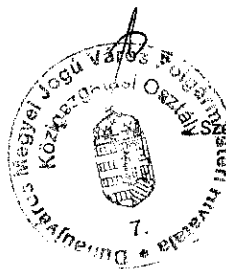 Dunaújváros Megyei Jogú Város Polgármesteri Hivatala
Közigazgatási Osztály
Sze
7.